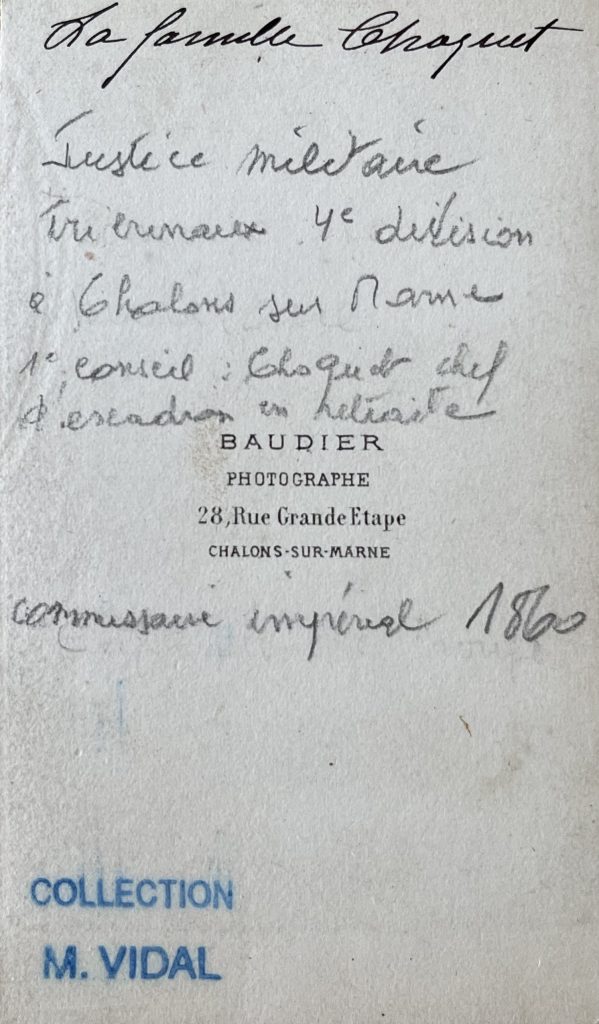 La famille Choquet
Justice militaire
Tribunaux 4e division
à Chalons sur Marne
1e conseil : Choquet chef
d'escadron en retraite
BAUDIER
PHOTOGRAPHE
28, Rue Grande Etape
CHALONS-SUR-MARNE
commissaire impérial 1860
COLLECTION
M. VIDAL